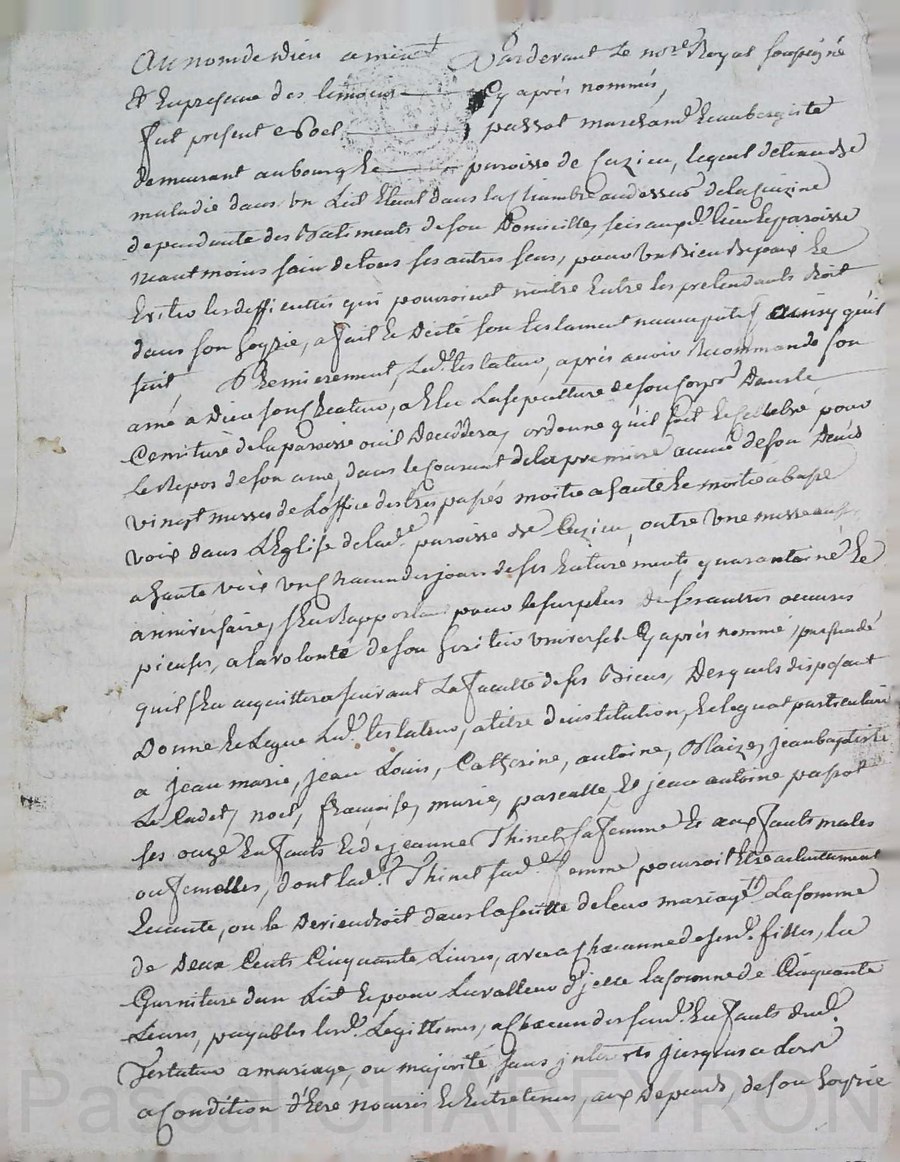 Au nom de dieu amen Pardevant Le no.re Royal soussigné
Et En presence des temoins cy après nommés,
fut present Noel passot marchand Et aubergiste
demeurant au bourg Et paroisse de Cuzieu, lequel detenu de
maladie dans un Lict Etent dans la chambre audessus de la cuizine
dependante des Batiments de son Domicille, scis auxd. lieu Et paroisse
neantmoins sain de tous ses autres sens, pour un Bien de paix Et
Eviter les difficultés qui pouroient naitre Entre les pretendants droit
dans son hoyrie, a fait Et Dicté son testament nuncupatif ainsy qu'il
suit, Premierement, Led. testateur, après avoir Recommandé son
ame a Dieu son Createur, a Elu La sepulture de son Corps Dans le
Cemitière de la paroisse ou il Decedera, ordonne qu'il soit Celebré pour
Le Repos de son ame, dans le Courant de la premiere année de son Deués
vingt messes de L'office des trepassés moitié a haute Et moitié a basse
voix dans L'Eglise de lad.e paroisse de Cuzieu, outre une messe aussy
a haute voix un Chacun des jours de ses Enterements, quarantaine Et
anniversaire, s'En Rapportant pour le surplus de ses autres oeuvres
pieuses, a la volonté de son heritier universel Cy après nommé, persuadé
qu'il s'En acquittera suivant La faculté de ses Biens, Desquels disposant
Donne Et Legue Led. testateur, a titre d'institution, Et legat particulier
a jean marie, jean Louis, Catherine, antoine, Blaize, jean baptiste
Le Cadet, noel, françoise, marie, pascalle, Et jean antoine passot
ses onze Enfants Et de jeanne Thinet sa femme Et aux fants males
ou femelles, dont lad. Thinet sad.e femme pouroit Etre actuellement
Enceinte, ou le Deviendroit dans la suitte de leur mariage La somme
de Deux Cents Cinquante Livres, avec a Chacunne de sesd. filles, la
Garniture d'un Lict Et pour La valleur d'jcelle la somme de Cinquante
Livres, payables lesd. Legittimes, a Chacun des susd. Enfants dud.
Testateur a mariage, ou majorité sans jnterets jusques a Lors
a Condition d'Etre nouris Et Entretenus, aux Depends, de son hoyrie
Pascal CHAREYRON